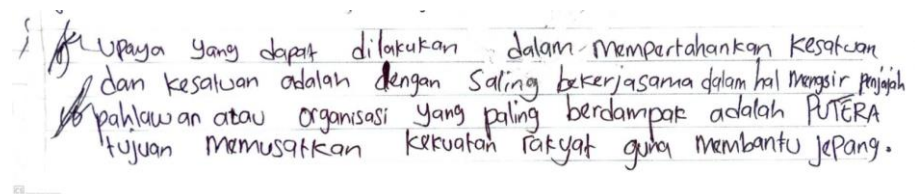 upaya yang dapat dilakukan dalam mempertahankan kesatuan
dan kesatuan adalah dengan saling bekerjasama dalam hal mengsir penjajah
pahlawan atau organisasi yang paling berdampak adalah PUTERA
tujuan memusatkan kekuatan rakyat guna membantu jepang.